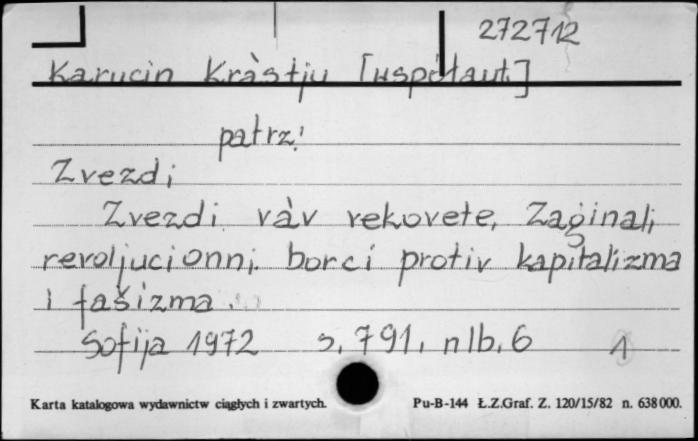 272712
Karucin Kràstju [współaut.]
patrz:
Zvezdi
Zvezdi vàv vekovete, Zaginali
revoljucionni borci protiv kapitalizma
i fašizma.
Sofija 1972 s. 791, nlb. 6
1
Karta katalogowa wydawnictw ciągłych i zwartych. Pu-B-144 Ł.Z.Graf. Z. 120/15/82 n. 638000.